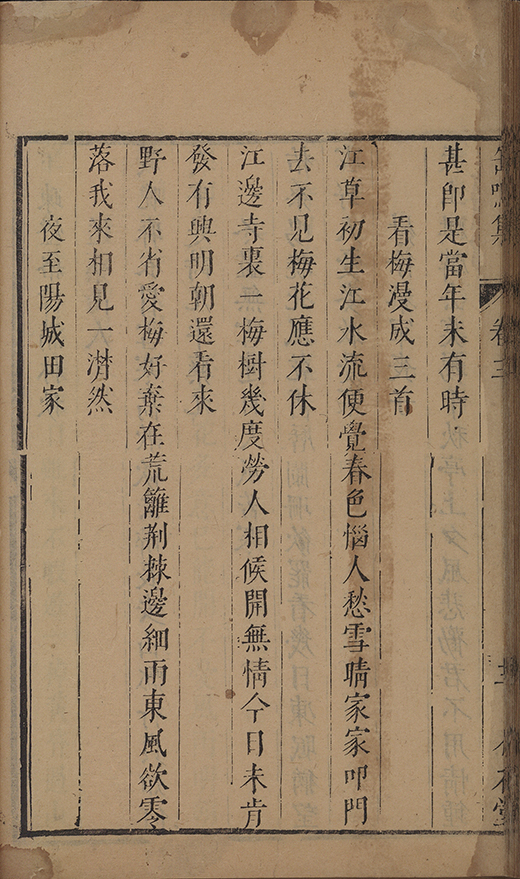 缶鳴集
卷三
甚即是當年未有時
看梅漫成三首
江草初生江水流便覺春色惱人愁雪晴家家叩門
去不見梅花應不休
江邊寺裏一梅樹幾度勞人相候開無情今日未肯
發有興明朝還看來
野人不省愛梅好棄在荒籬荆棘邊細雨東風欲零
落我來相見一潸然
夜至陽城田家